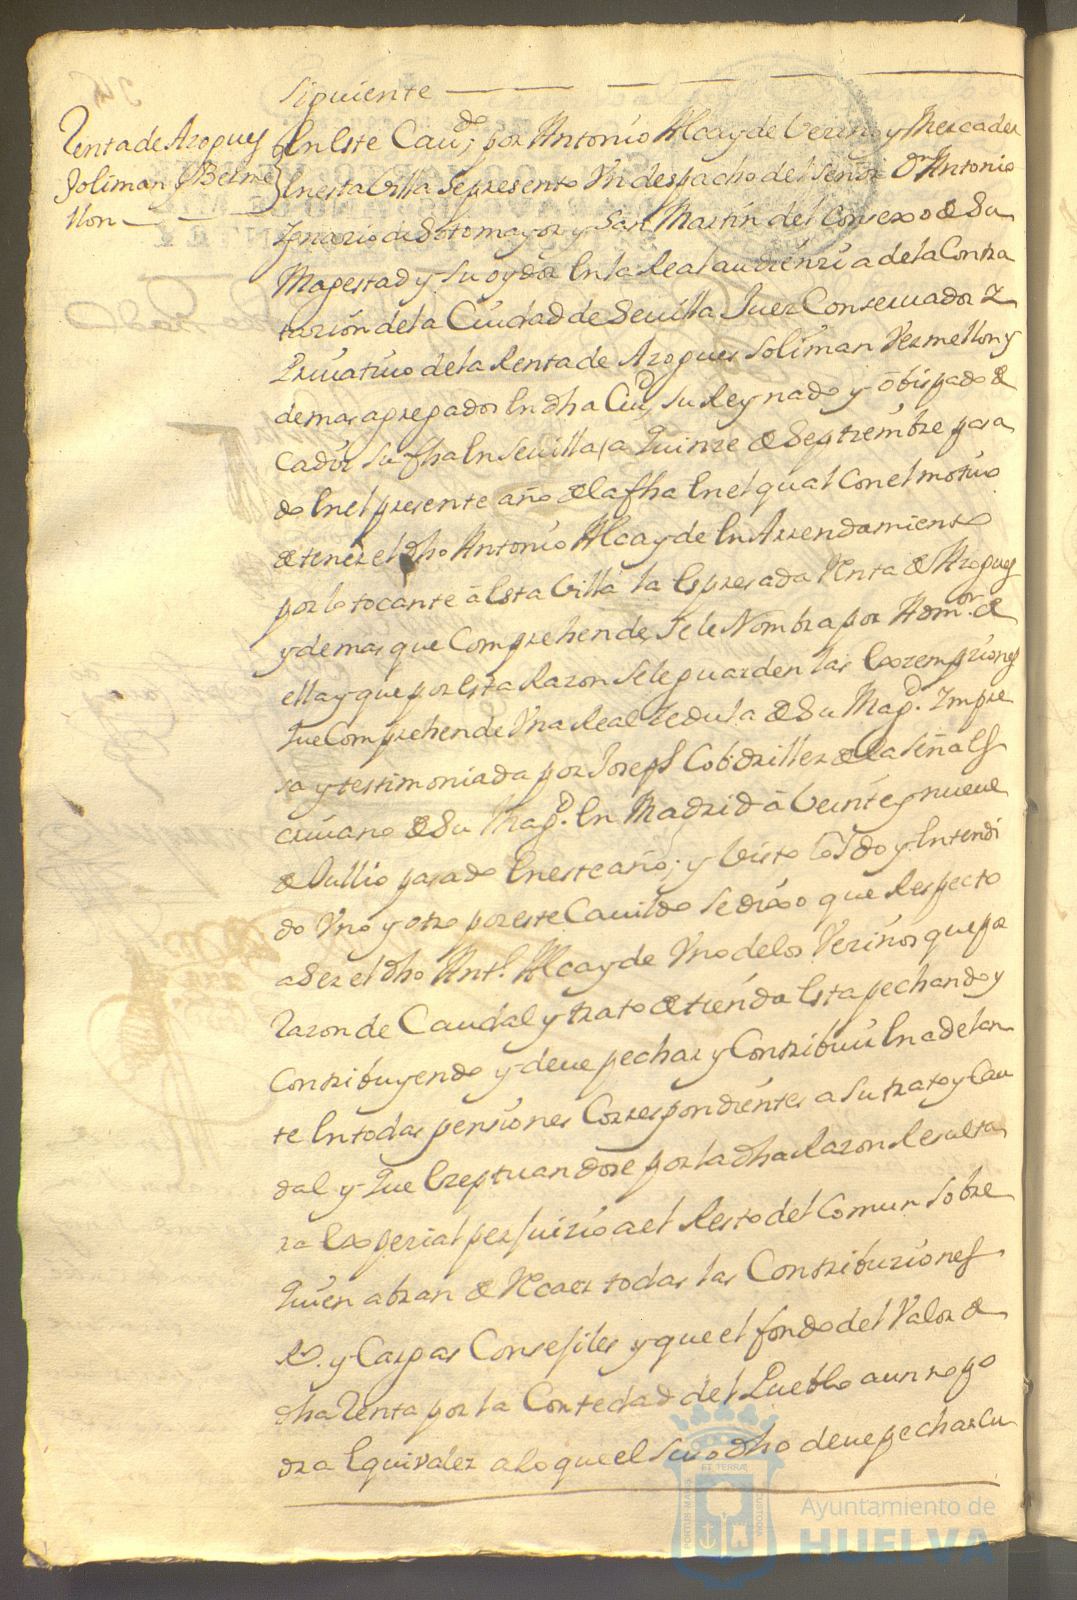 siguiente
Renta de Azogues
Soliman y Berme
llon
En este Cavdo, por Antonio Alcayde Vezino y Mercader
en esta Villa se presento Un despacho del Señor Dn Antonio
Ignazio de Sotomayor y San Martin del Consexo de Su
Magestad y su oydor En la Real audienzia de la Contra
tazion de la Ciudad de Sevilla Juez Conservador y
Privativo de la Renta de Azogues Soliman Vermellon y
demas agregados En dha Ciud, su Reynado y obispado de
Cadiz su fha En Sevilla a quinze de Septiembre pasa
do En el presente año de la fha En el qual Con el motivo
de tener el dho Antonio Alcayde En Arrendamiento
por lo tocante â Esta Villa la Espresada Renta de Azogues
y demas que Comprehende, se le Nombra por Admor. de
ella y que por Esta Razon se le guarden las Exzempziones
que Comprehende Una Real Zedula de Su Magd. Impre
sa y testimoniada por Joseph de la Peña Es
crivano de Su Magd. En Madrid â Veinte y nueve
de Jullio pasado En este año; y Visto oydo y Entendi
do Uno y otro por este Cavildo se dixo que Respecto
a Ser el dho Antto. Alcayde Uno de los Vezinos que por
Razon de Caudal y trato de tienda Esta pechando y
Contribuyendo y deve pechar y Contribuir En adelan
te En todas pensiones Correspondientes a su trato y Cau
dal y que Exeptuandose por la dha Razon Resulta
ra Expezial perjuizio a el Resto del Comun sobre
quien abran de Recaer todas las Contribuziones
Rs. y Cargas Consejiles y que el fondo del Valor de
dha Renta por la Cortedad del Pueblo aun no po
dra Equivaler a lo que el Suso dho deve pechar cu
Ayuntamiento de
HUELVA
PORTUS MARIS
ET TERRAE
CUSTODIA